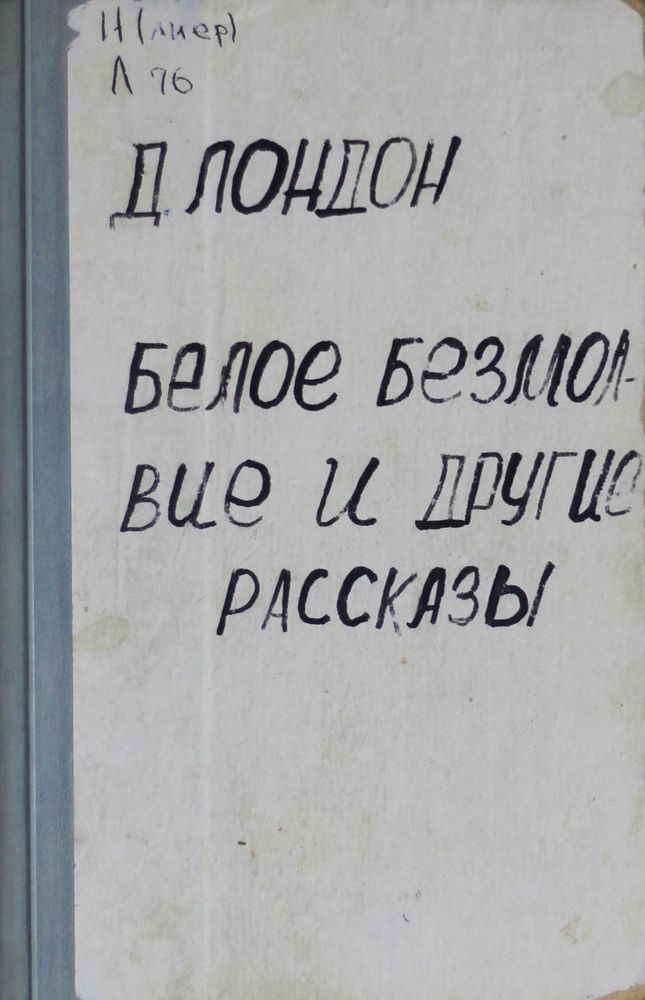 И(амер)
Л 76
Д. ЛОНДОН
БЕЛОЕ БЕЗМОЛ-
ВИЕ И ДРУГИЕ
РАССКАЗЫ